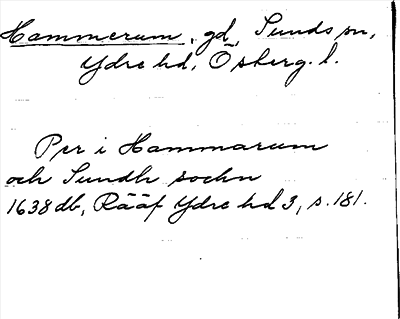 Hammerum, gd, Sunds sn,
Ydre hd, Ösberg. l.
Per i Hammarum
och Sundh sochn
1638 db, Rääf Ydre hd 3, s. 181.